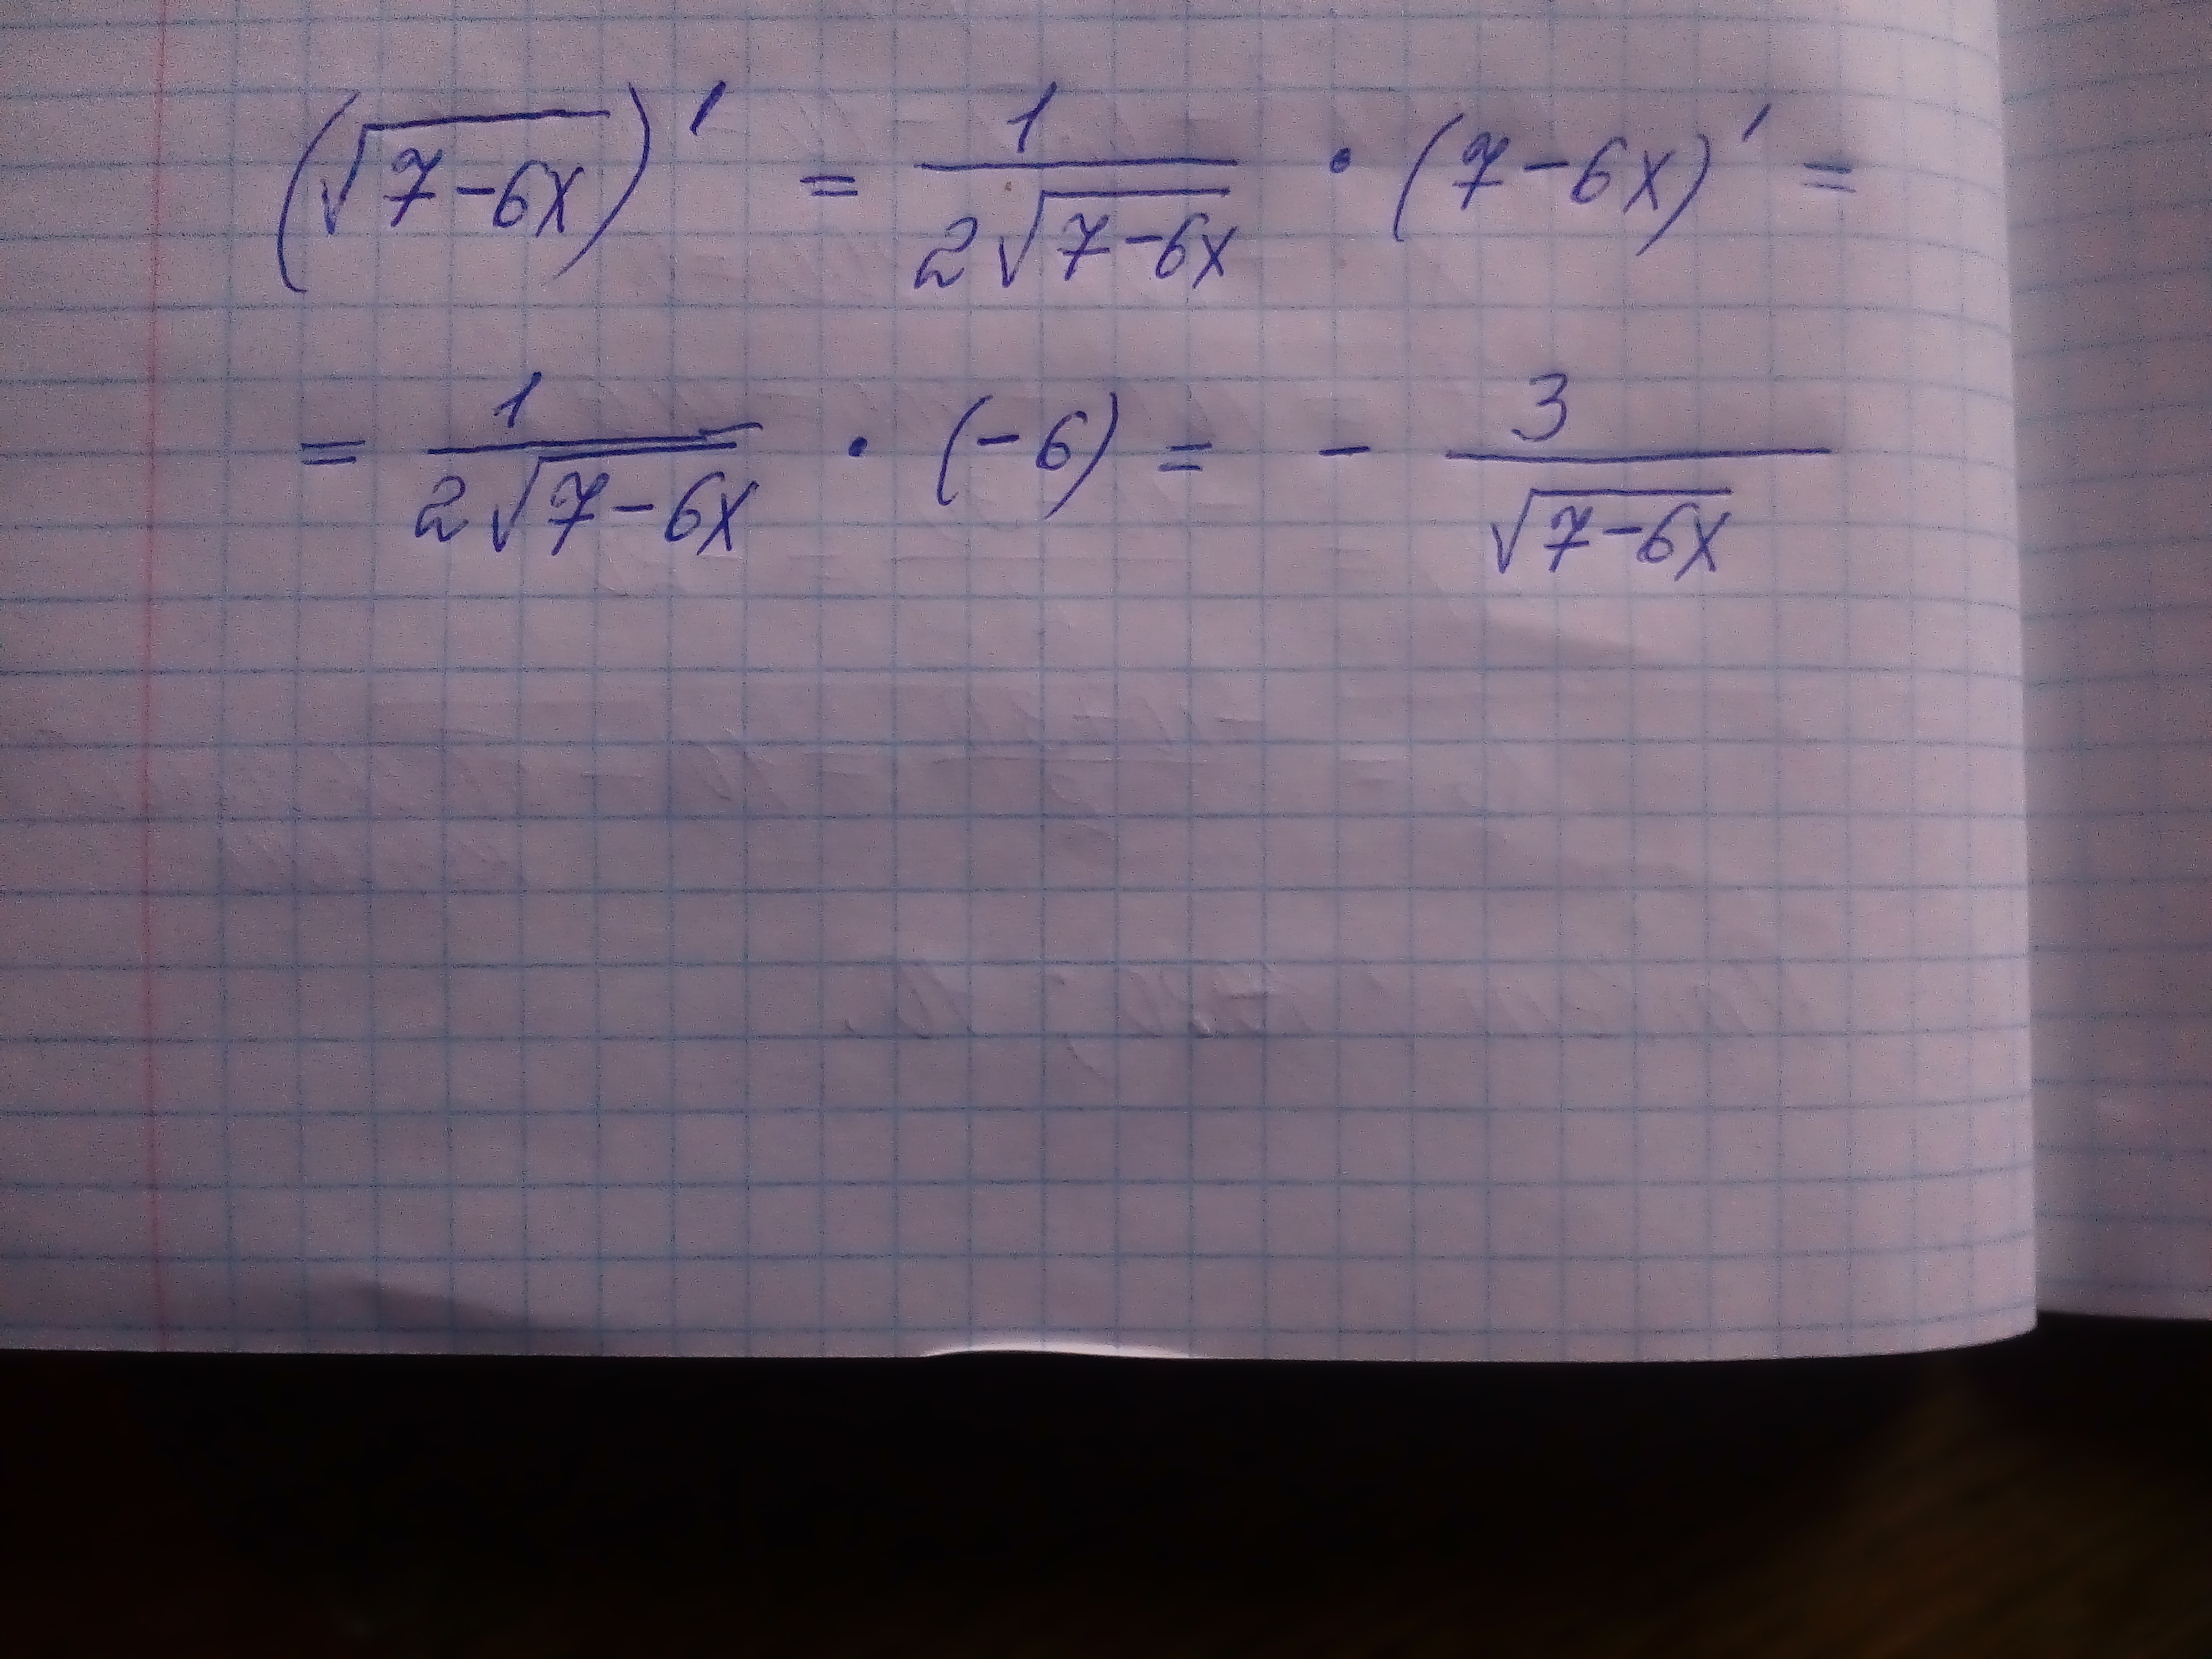 (√(7-6x))' = 1/(2√(7-6x)) · (7-6x)' =
= 1/(2√(7-6x)) · (-6) = - 3/√(7-6x)